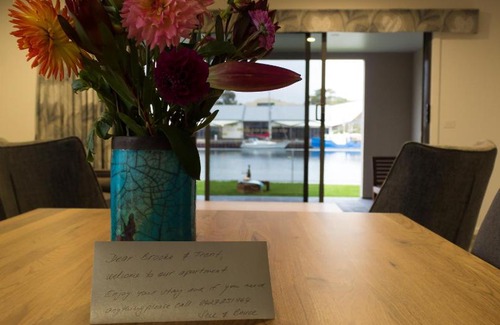 Dear Brooke & Trent,
welcome to our apartment
Enjoy your stay and if you need
anything please call